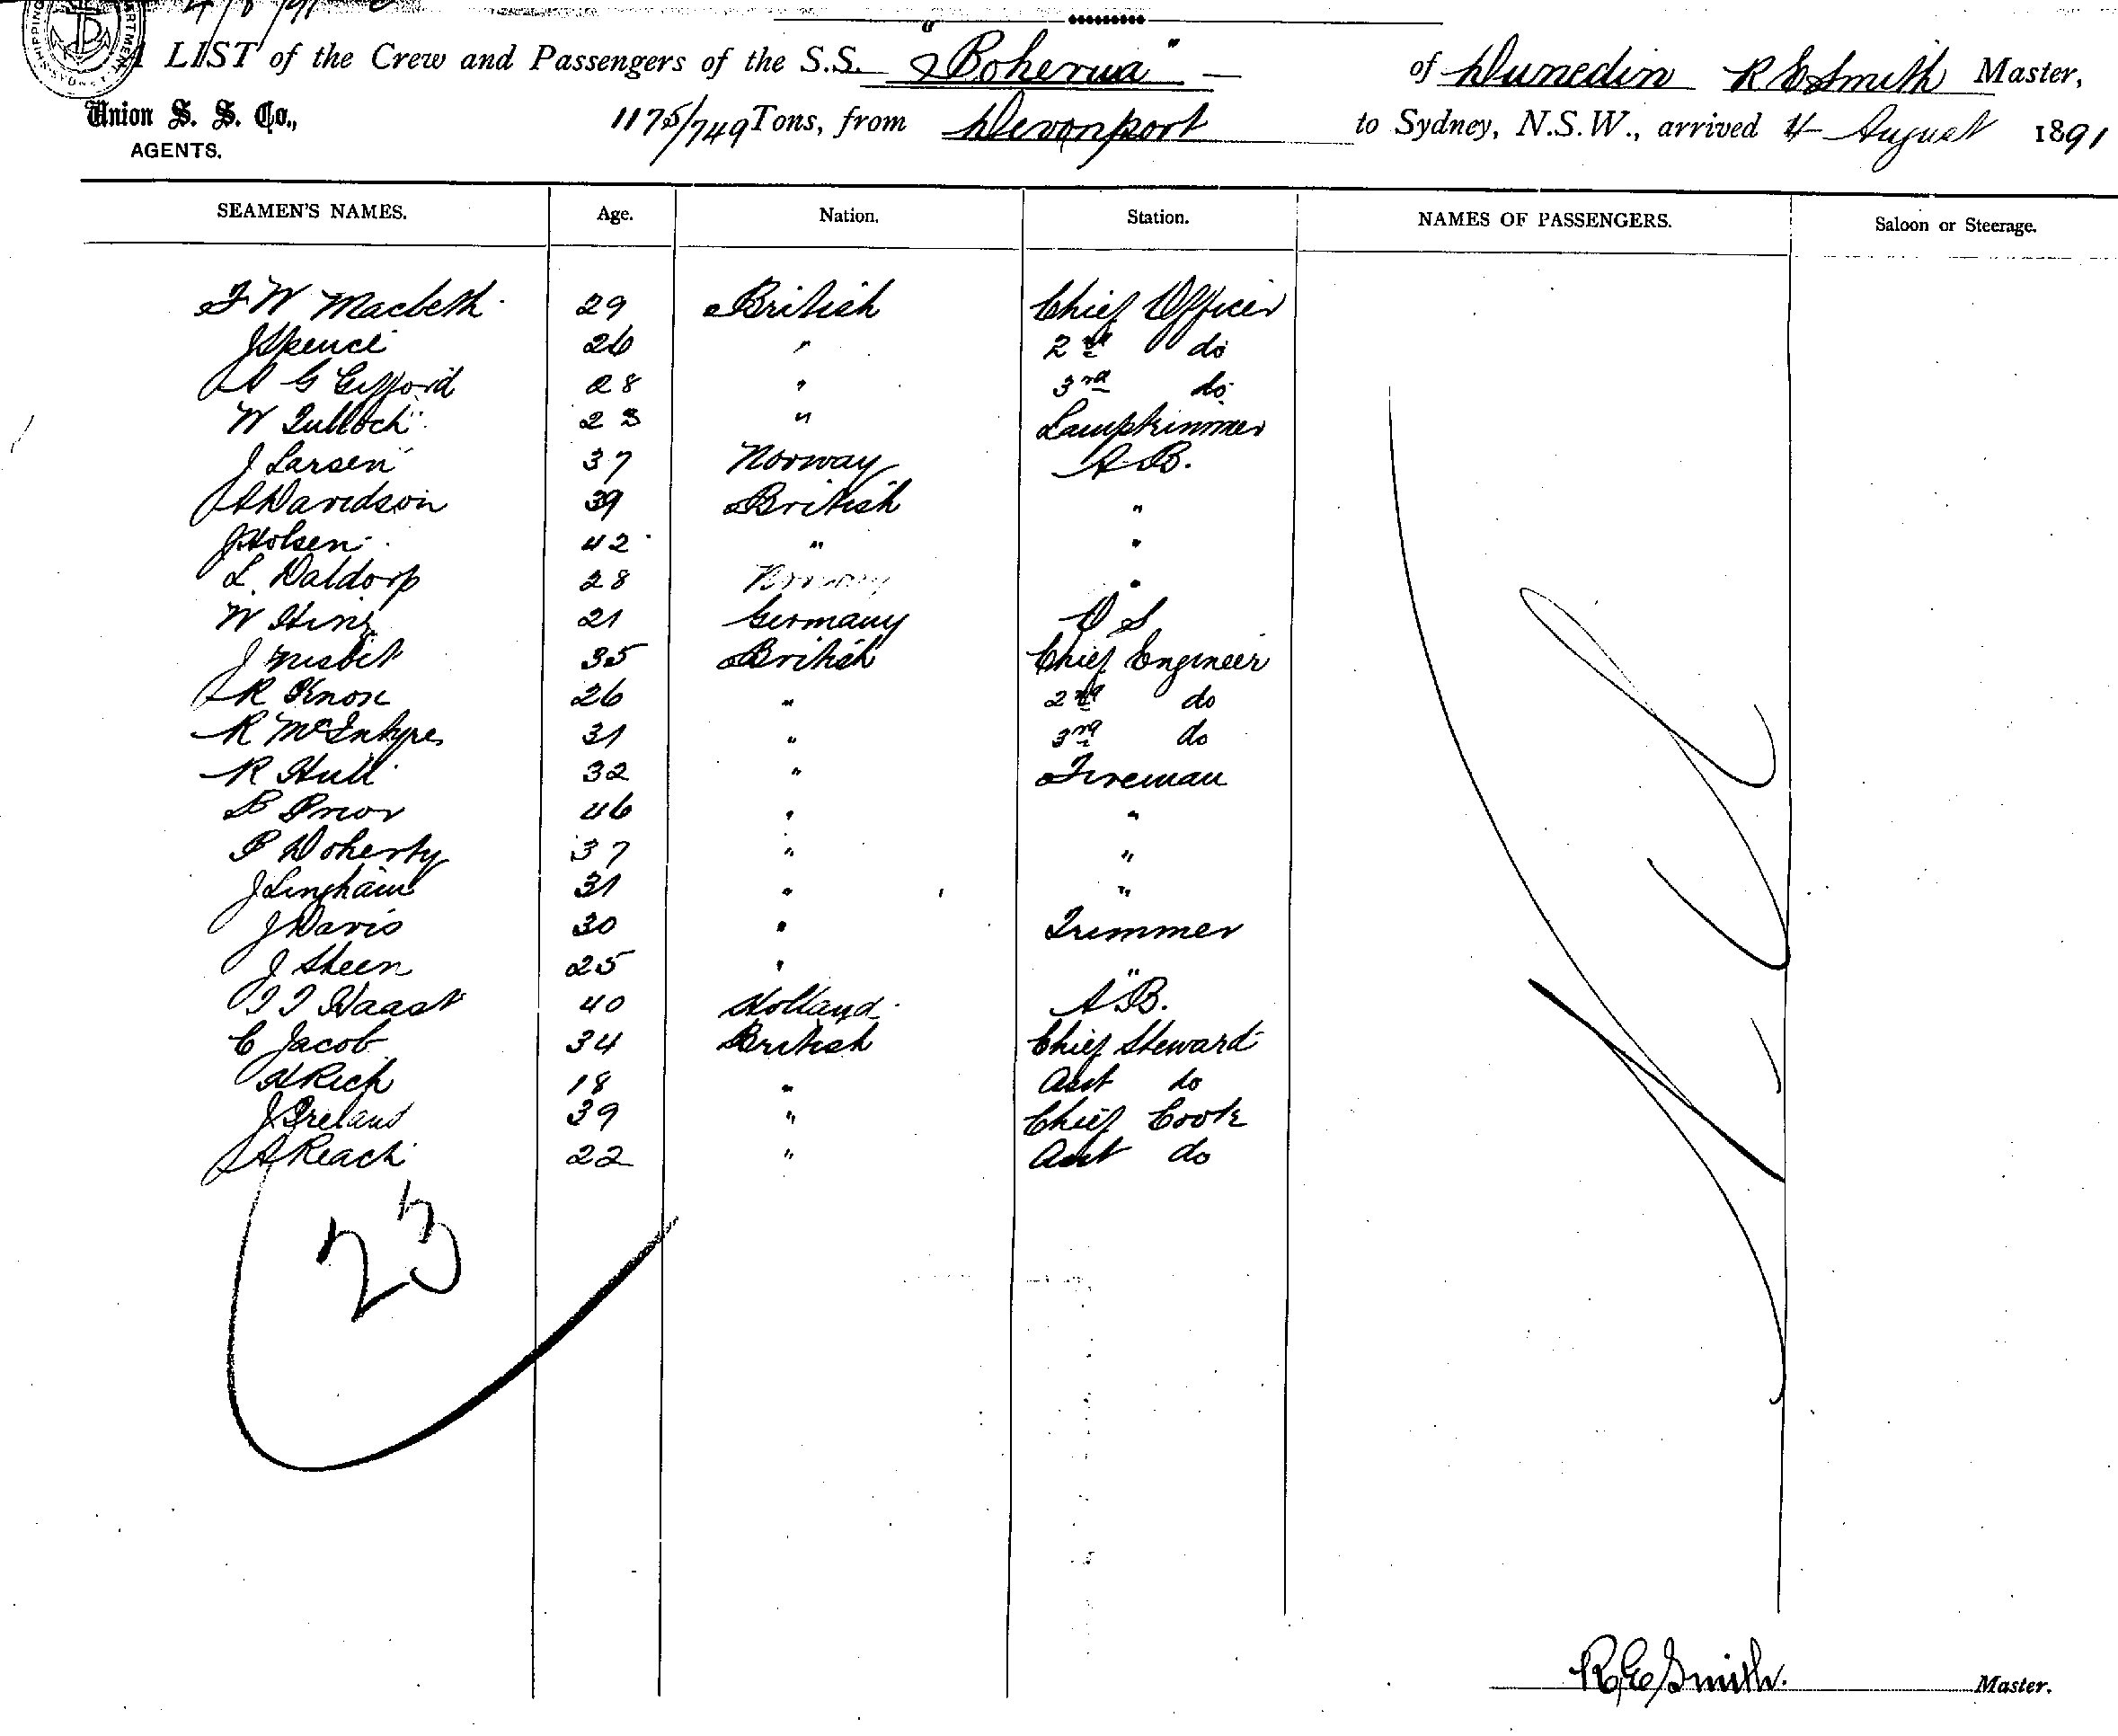 A LIST of the Crew and Passengers of the S.S. "Boherua" of Dunedin R E Smith Master,
Union S. S. Co., 1175/749 Tons, from Devonport to Sydney, N.S.W., arrived 4 August 1891
AGENTS.
SEAMEN'S NAMES. Age. Nation. Station. NAMES OF PASSENGERS. Saloon or Steerage.
F W Macbeth 29 British Chief Officer
J Spence 26 " 2nd do
A G Gifford 28 " 3rd do
W Tulloch 23 " Lamptrimmer
J Larsen 37 Norway A.B.
A Davidson 39 British "
J Holsen 42 " "
L. Waldorp 28 Norway "
W Hinz 21 Germany O S
J Nisbet 35 British Chief Engineer
R Knox 26 " 2nd do
R McIntyre 31 " 3rd do
R Hull 32 " Fireman
B Prior 46 " "
P Doherty 37 " "
J Lingham 31 " "
J Davis 30 " Trimmer
J Steen 25 " "
T T Haast 40 Holland A.B.
C Jacob 34 British Chief Steward
H Rich 18 " Asst do
J Ireland 39 " Chief Cook
A Reach 22 " Asst do
23
R E Smith. Master.